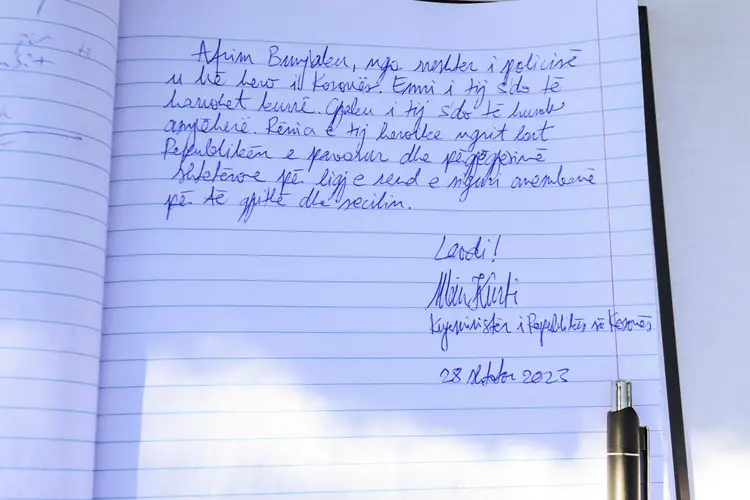 Afrim Bunjaku, nga reshter i policisë
u bë hero i Kosovës. Emri i tij s'do të
harrohet kurrë. Gjaku i tij s'do të humb
asnjëherë. Rënia e tij heroike ngrit lart
Republikën e pavarur dhe përgjegjësinë
shtetërore për ligj e rend e siguri anembanë
për të gjithë dhe secilin.
Lavdi!
Albin Kurti
Kryeministër i Republikës së Kosovës
28 tetor 2023